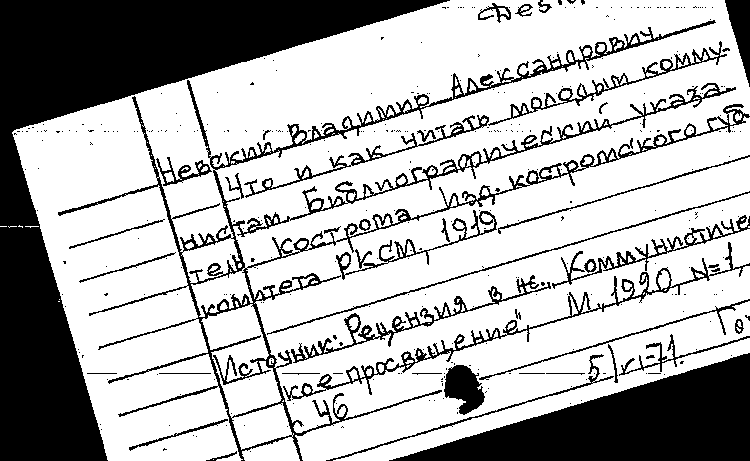 Невский, Владимир Александрович.
Что и как читать молодым комму-
нистам. Библиографический указа-
тель. Кострома. Изд. костромского губ
комитета РКСМ, 1919.
Источник: Рецензия в ж. „Коммунистичес
кое просвещение", М., 1920, N=1,
с 46
5/VI-71.